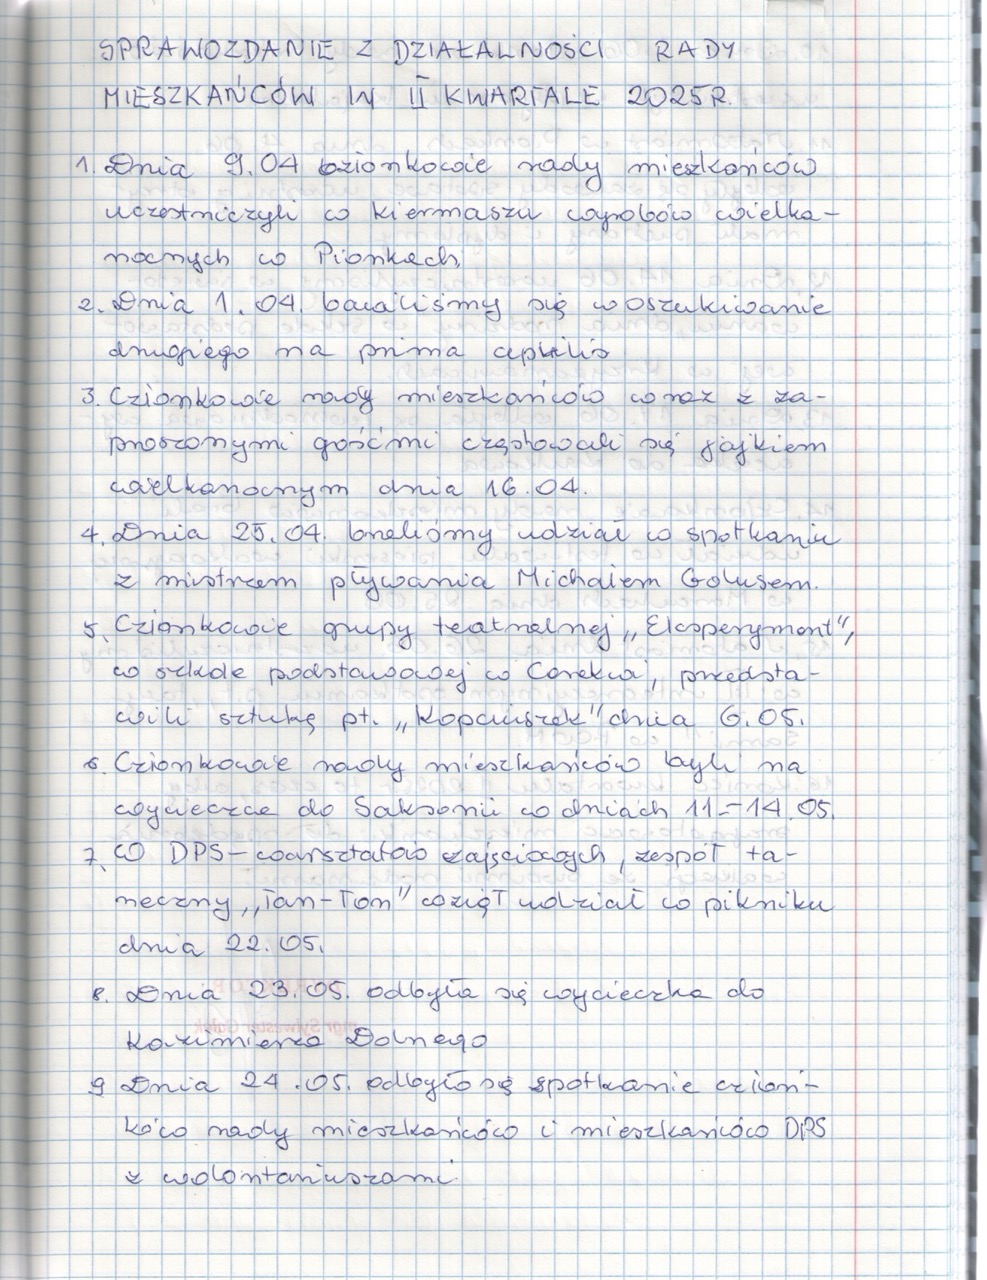 SPRAWOZDANIE Z DZIAŁALNOŚCI RADY
MIESZKAŃCÓW W II KWARTALE 2025R.
1. Dnia 9.04 członkowie rady mieszkańców
uczestniczyli w kiermaszu wyrobów wielka-
nocnych w Pionkach,
2. Dnia 1.04. bawiliśmy się w oszukiwanie
drugiego na prima aprilis
3. Członkowie rady mieszkańców wraz z za-
proszonymi gośćmi częstowali się jajkiem
wielkanocnym dnia 16.04.
4. Dnia 25.04. braliśmy udział w spotkaniu
z mistrzem pływania Michałem Golusem.
5. Członkowie grupy teatralnej „Eksperyment”,
w szkole podstawowej w Cerekwi, przedsta-
wili sztukę pt. „Kopciuszek” dnia 6.05.
6. Członkowie rady mieszkańców byli na
wycieczce do Saksonii w dniach 11-14.05.
7. W DPS-warsztatów zajęciowych, zespół ta-
neczny „Tan-Ton” wziął udział w pikniku
dnia 22.05.
8. Dnia 23.05. odbyła się wycieczka do
Kazimierza Dolnego
9 Dnia 24.05. odbyło się spotkanie człon-
ków rady mieszkańców i mieszkańców DPS
z wolontariuszami.